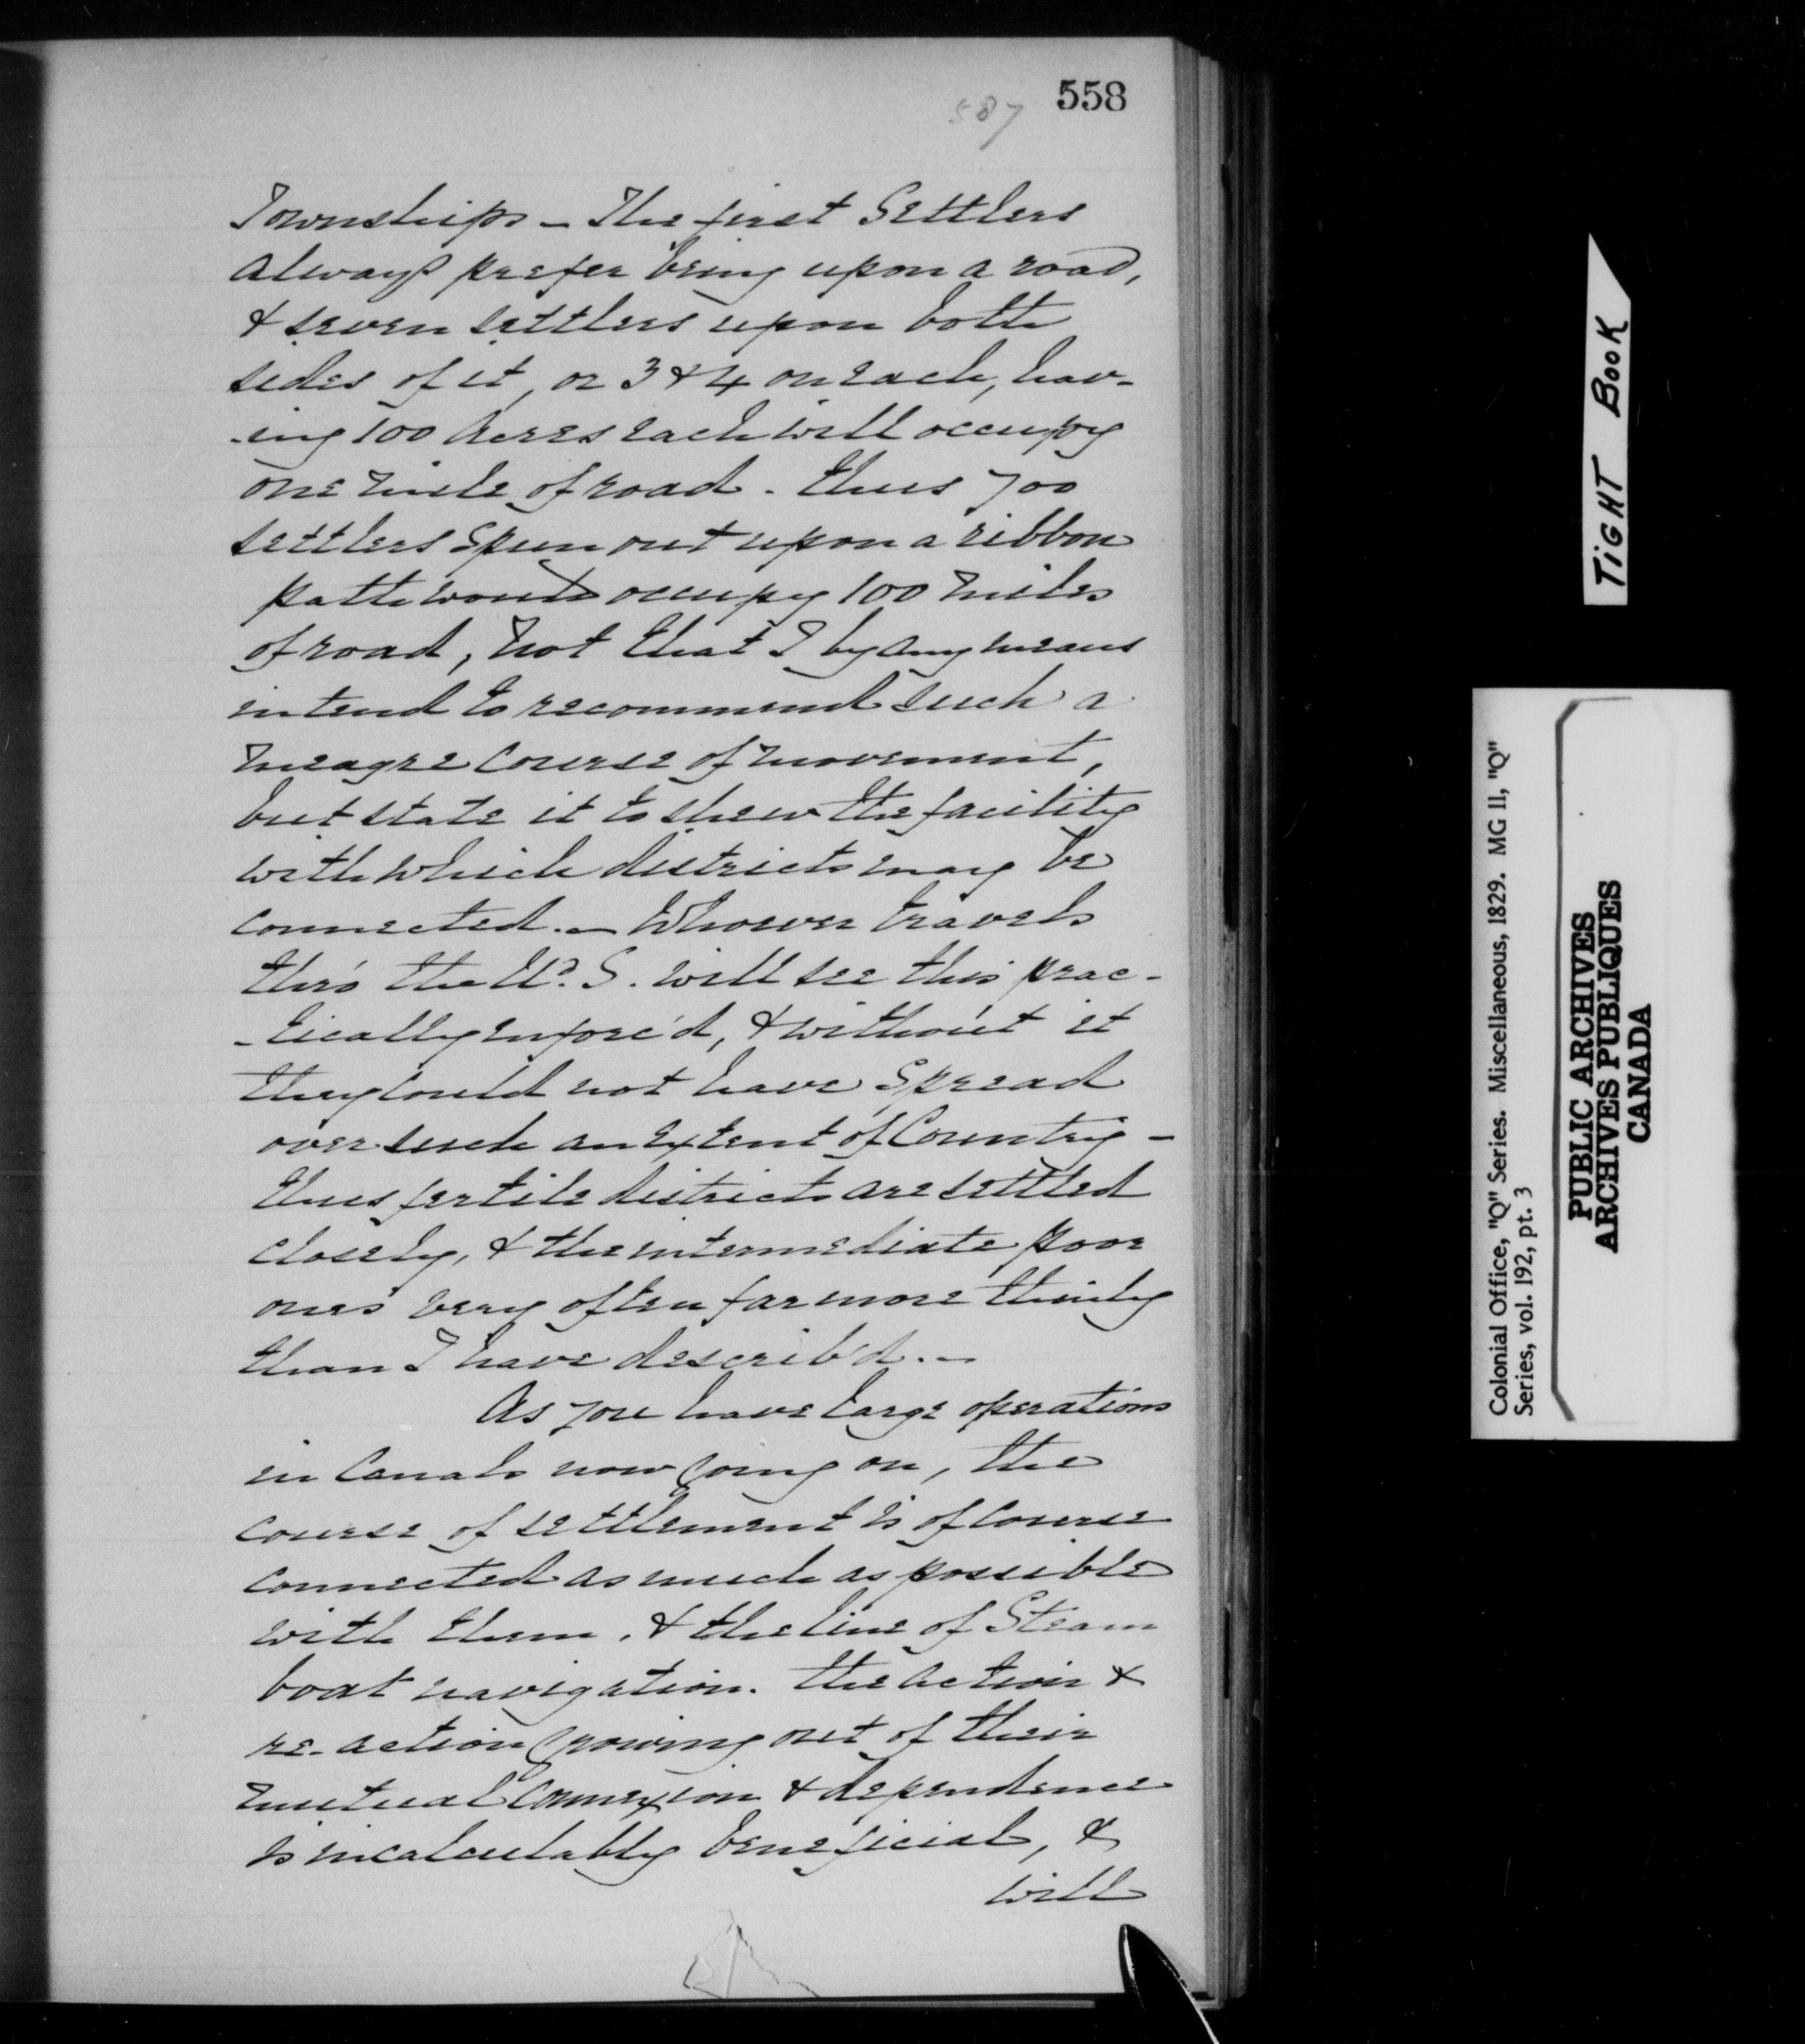 558
587
Townships - The first Settlers
always prefer being upon a road,
& seven settlers upon both
sides of it, or 3 & 4 on each, hav-
-ing 100 Acres each will occupy
one mile of road. thus 700
settlers spun out upon a ribbon
path would occupy 100 miles
of road, not that I by any means
intend to recommend such a
meagre course of movement,
but state it to shew the facility
with which districts may be
connected. - Whoever travels
thro' the Ud. S. will see this prac-
-tically enforc'd, & without it
they could not have spread
over such an extent of Country -
thus fertile districts are settled
closely, & the intermediate poor
ones very often far more thinly
than I have describ'd. -
As you have large operations
in Canals now going on, the
course of settlement is of course
connected as much as possible
with them, & the line of Steam
boat navigation. the action &
re-action growing out of their
mutual connexion & dependence
is incalculably beneficial, &
will
TIGHT BOOK
Colonial Office, "Q" Series. Miscellaneous, 1829. MG 11, "Q"
Series, vol. 192, pt. 3
PUBLIC ARCHIVES
ARCHIVES PUBLIQUES
CANADA